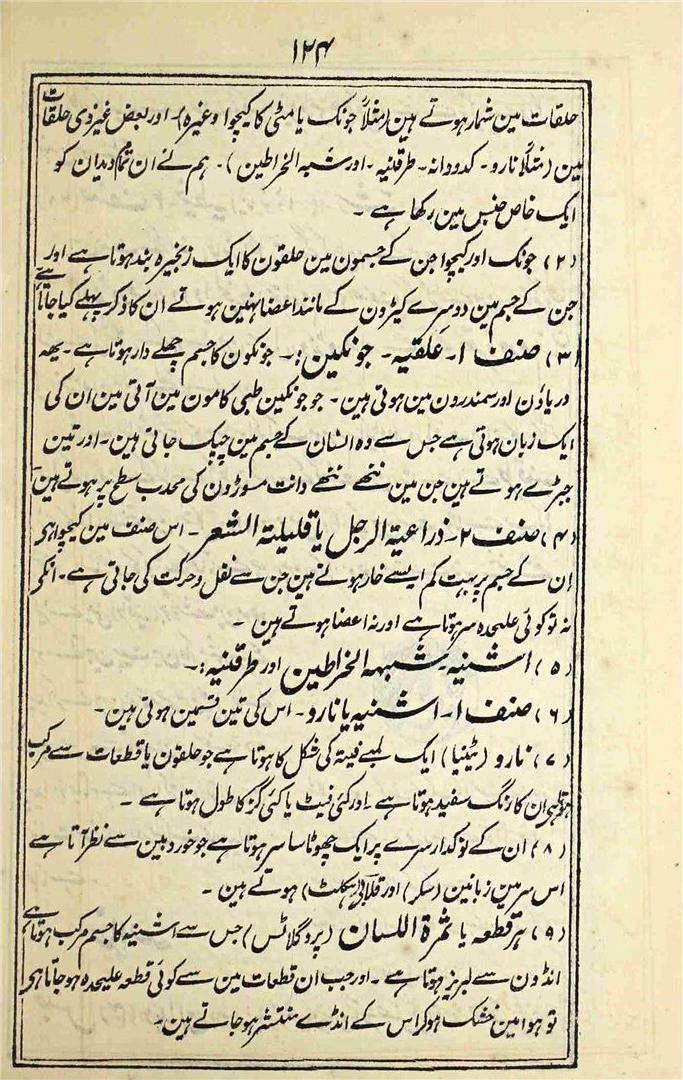 ۱۲۴
حلقات مین شمار ہوتے ہین (مثلاً جونک یا مٹی کا کیچوا وغیرہ)۔ اور بعض غیر ذی حلقات
ہین (مثلاً نارو۔ کدودانہ۔ طرقنیہ۔ اور شبہ الخراطین)۔ ہم نے ان تمام دیدان کو
ایک خاص جنس مین رکھا ہے۔
(۲) جونک اور کیچوا جن کے جسمون مین حلقون کا ایک زنجیرہ بند ہوتا ہے اور
جن کے جسم مین دوسرے کیڑون کے مانند اعضا نہین ہوتے ان کا ذکر پہلے کیا جاتا ہے
(۳) صنف ۱۔ عَلقیہ۔ جونکین :۔ جونکون کا جسم چھلے دار ہوتا ہے۔ یہہ
دریاؤن اور سمندرون مین ہوتی ہین۔ جو جونکین طبی کامون مین آتی ہین ان کی
ایک زبان ہوتی ہے جس سے وہ انسان کے جسم مین چپک جاتی ہین۔ اور تین
جبڑے ہوتے ہین جن مین ننھے ننھے دانت مسوڑون کی محدب سطح پر ہوتے ہین
(۴) صنف ۲۔ ذراعیۃ الرجل یا قلیلۃ الشعر۔ اس صنف مین کیچوا ہی
ان کے جسم پر بہت کم ایسے خار ہوتے ہین جن سے نقل و حرکت کی جاتی ہے۔ انکی
نہ تو کوئی علیحدہ سر ہوتا ہے اور نہ اعضا ہوتے ہین۔
(۵) اشنیہ۔ شبہہ الخراطین اور طرقنیہ :۔
(۶) صنف ۱۔ اشنیہ یا نارو۔ اس کی تین قسمین ہوتی ہین۔
(۷) نارو (ٹینیا) ایک لمبے فیتہ کی شکل کا ہوتا ہے جو حلقون یا قطعات سے مرکب
ہوتا ہی ان کا رنگ سفید ہوتا ہے۔ اور کئی فیٹ یا کئی گز کا طول ہوتا ہے۔
(۸) ان کے نوکدار سرے پر ایک چھوٹا سا سر ہوتا ہے جو خوردبین سے نظر آتا ہے
اس سر مین زبانین (سکر) اور قلابی (ہکلٹ) ہوتے ہین۔
(۹) ہر قطعہ یا ثمرۃ اللسان (پروگلاٹس) جس سے اشنیہ کا جسم مرکب ہوتا ہے
انڈون سے لبریز ہوتا ہے۔ اور جب ان قطعات مین سے کوئی قطعہ علیحدہ ہو جاتا ہی
تو ہوا مین خشک ہو کر اس کے انڈے منتشر ہو جاتے ہین۔